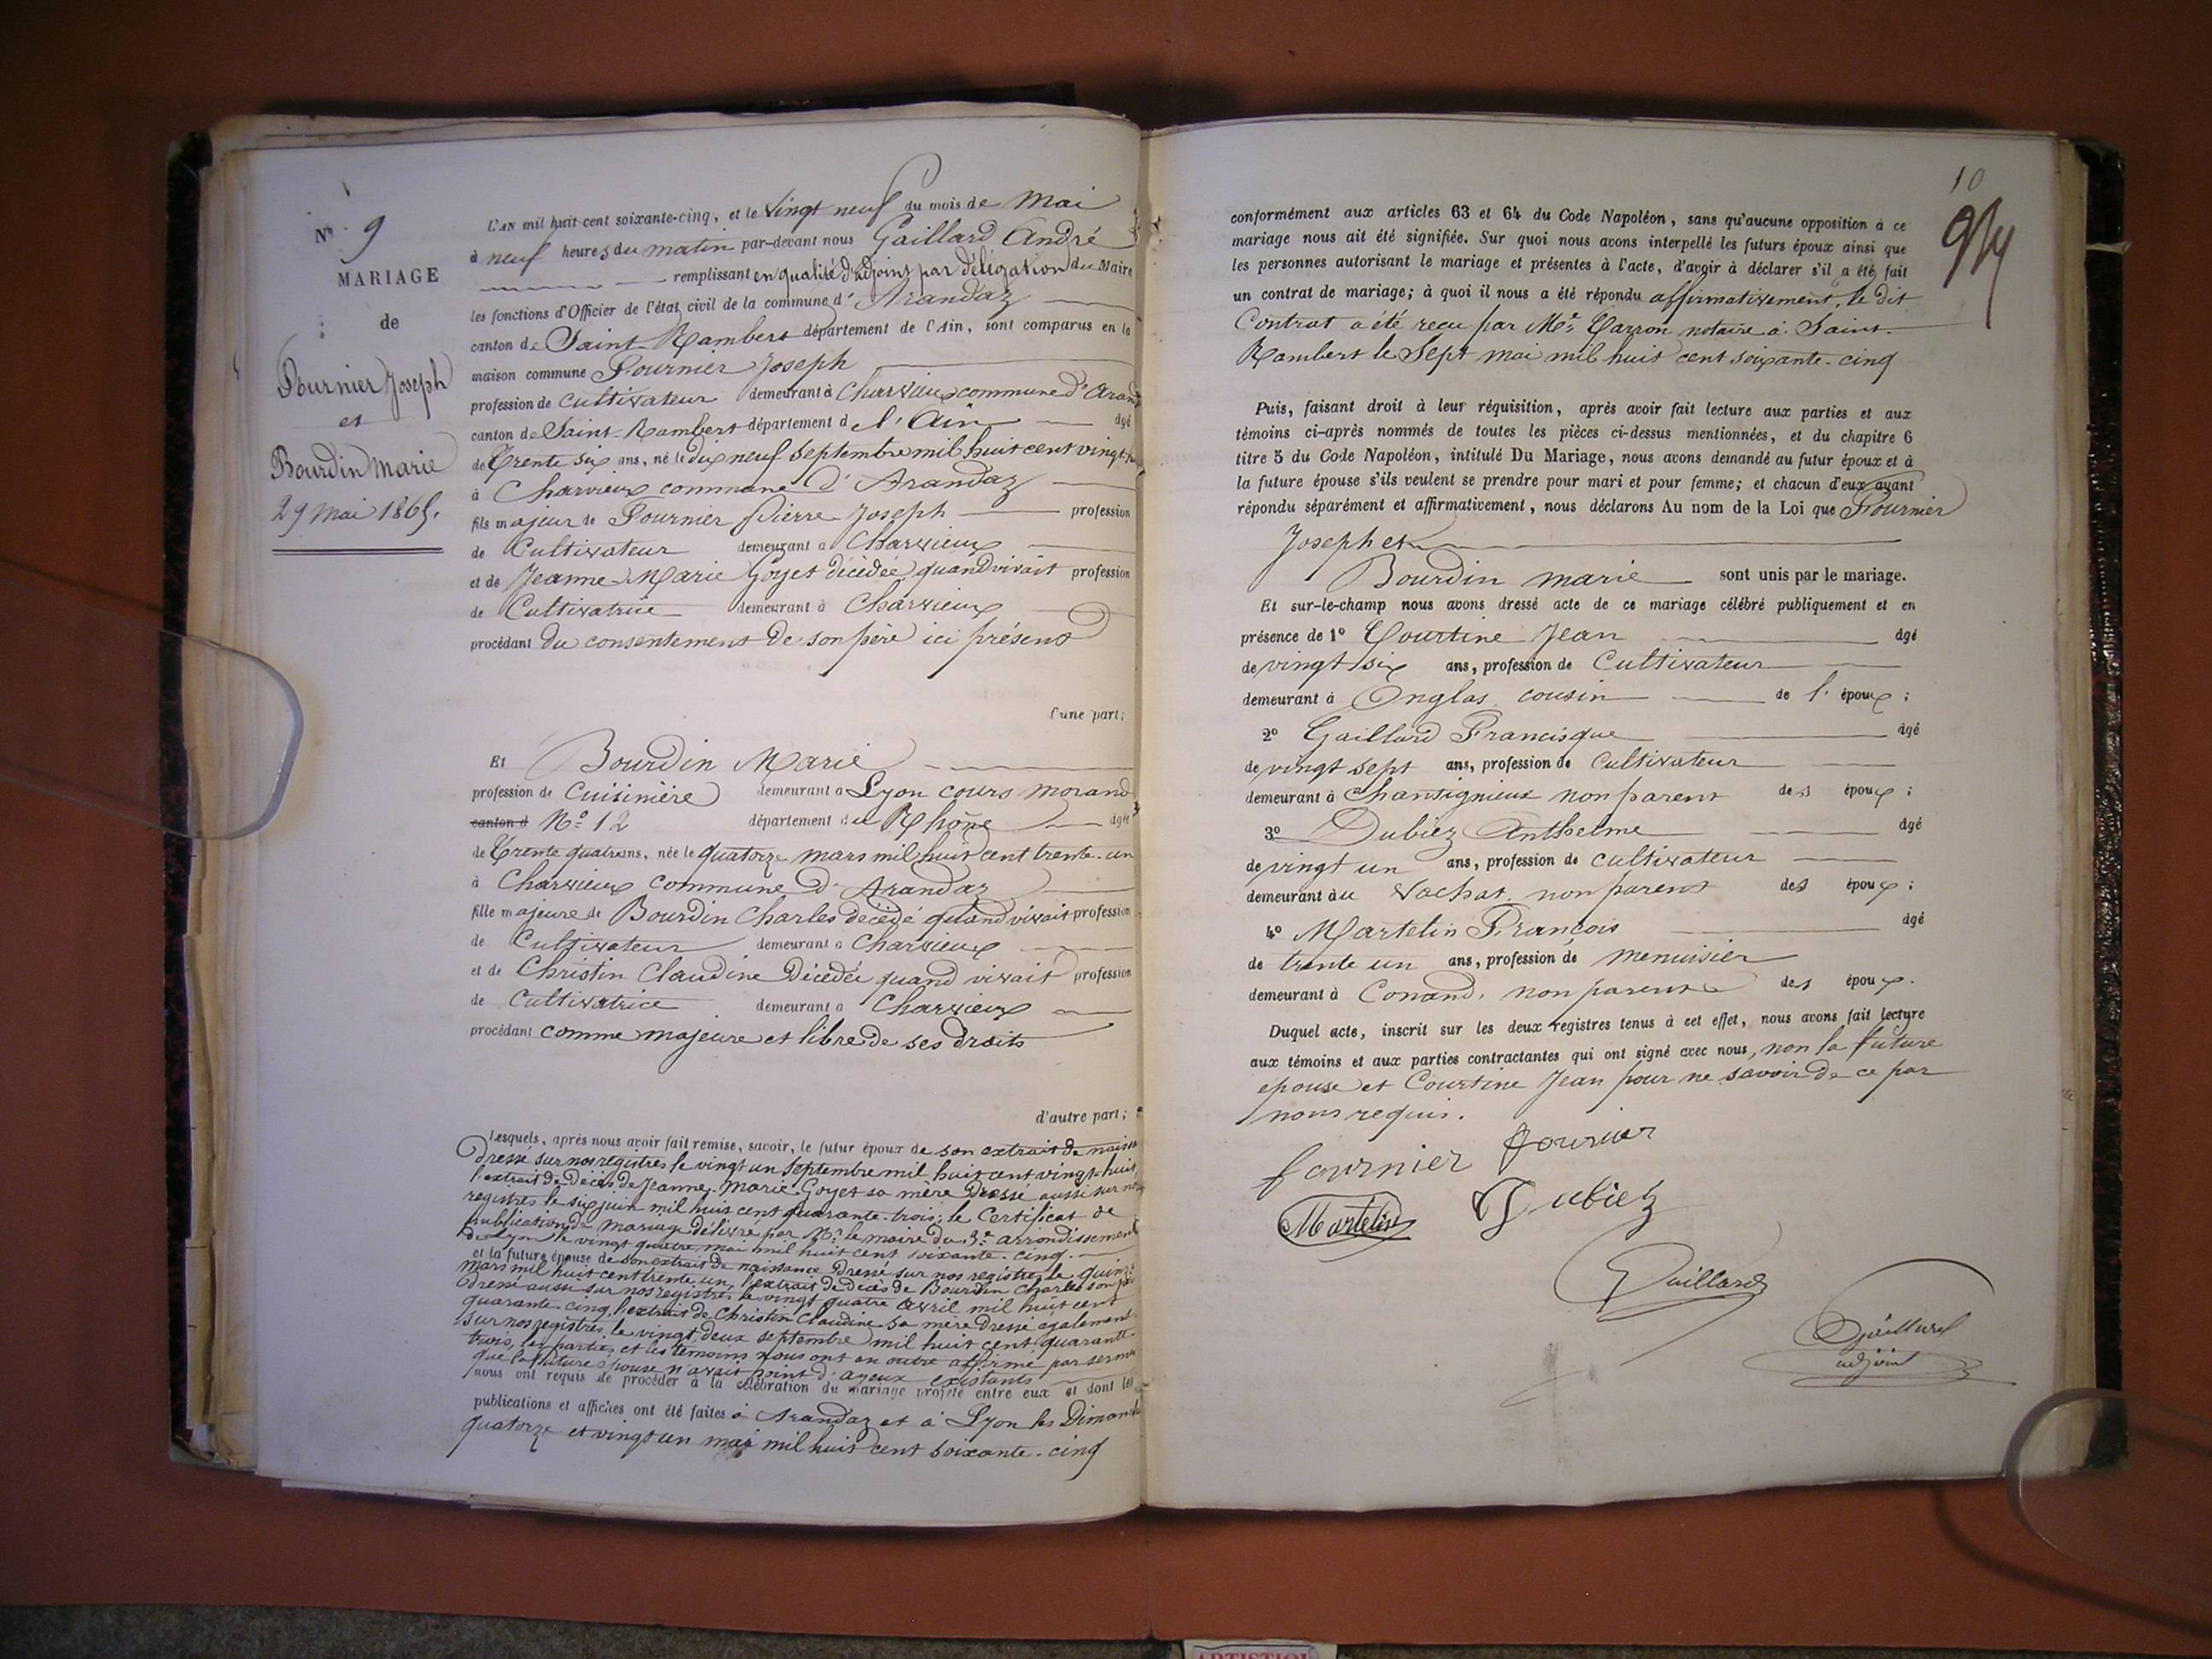 Nº 9
MARIAGE
de
Fournier Joseph
et
Bourdin Marie
29 Mai 1865.
L'AN mil huit cent soixante-cinq, et le vingt neuf du mois de Mai
à neuf heures du matin par-devant nous Gaillard André
remplissant en qualité d'adjoint par délégation du Maire
les fonctions d'Officier de l'état civil de la commune d'Arandaz
canton de Saint-Rambert département de l'Ain, sont comparus en la
maison commune Fournier Joseph
profession de Cultivateur demeurant à Charvieux commune d'Arand
canton de Saint-Rambert département de l'Ain âgé
de Trente six ans, né le dix neuf Septembre mil huit cent vingt-hu
à Charvieux commune d'Arandaz
fils majeur de Fournier Pierre Joseph profession
de Cultivateur demeurant à Charvieux
et de Jeanne-Marie Goyet décédée quand vivait profession
de Cultivatrice demeurant à Charvieux
procédant du consentement de son père ici présent
l'une part;
Et Bourdin Marie
profession de Cuisinière demeurant à Lyon cours Morand
canton d Nº 12 département du Rhône âgée
de Trente quatre ans, née le quatorze mars mil huit cent trente-un
à Charvieux commune d'Arandaz
fille majeure de Bourdin Charles décédé quand vivait profession
de Cultivateur demeurant à Charvieux
et de Christin Claudine Décédée quand vivait profession
de Cultivatrice demeurant à Charvieux
procédant comme majeure et libre de ses droits
d'autre part;
Lesquels, après nous avoir fait remise, savoir, le futur époux de son extrait de naiss
Dressé sur nos registres le vingt un Septembre mil huit cent vingt-huit,
l'extrait de Décès de Jeanne-Marie Goyet sa mère Dressé aussi sur nos
registres le six juin mil huit cent quarante-trois; le Certificat de
publication de mariage délivré par Mr le maire du 3e arrondissement
de Lyon le vingt quatre mai mil huit cent soixante-cinq.
et la future épouse de son extrait de naissance Dressé sur nos registres le quinze
mars mil huit cent trente un, l'extrait de Décès de Bourdin Charles son père
Dressé aussi sur nos registres le vingt quatre Avril mil huit cent
quarante-cinq, l'extrait de Christin Claudine sa mère Dressé également
sur nos registres, le vingt deux septembre mil huit cent quarante
trois, les parties et les témoins nous ont en outre affirmé par serm
que la future épouse n'avait point d'ayeux existants
nous ont requis de procéder à la célébration du mariage projeté entre eux et dont les
publications et affiches ont été faites à Arandaz et à Lyon les Dimanch
quatorze et vingt un mai mil huit cent soixante-cinq
10
conformément aux articles 63 et 64 du Code Napoléon, sans qu'aucune opposition à ce
mariage nous ait été signifiée. Sur quoi nous avons interpellé les futurs époux ainsi que
les personnes autorisant le mariage et présentes à l'acte, d'avoir à déclarer s'il a été fait
un contrat de mariage; à quoi il nous a été répondu affirmativement, le dit
Contrat a été reçu par Me Carron notaire à Saint-
Rambert le Sept mai mil huit cent soixante-cinq
Puis, faisant droit à leur réquisition, après avoir fait lecture aux parties et aux
témoins ci-après nommés de toutes les pièces ci-dessus mentionnées, et du chapitre 6
titre 5 du Code Napoléon, intitulé Du Mariage, nous avons demandé au futur époux et à
la future épouse s'ils veulent se prendre pour mari et pour femme; et chacun d'eux ayant
répondu séparément et affirmativement, nous déclarons Au nom de la Loi que Fournier
Joseph et
Bourdin marie sont unis par le mariage.
Et sur-le-champ nous avons dressé acte de ce mariage célébré publiquement et en
présence de 1º Courtine Jean âgé
de vingt six ans, profession de Cultivateur
demeurant à Onglas cousin de l'époux;
2º Gaillard Francisque âgé
de vingt sept ans, profession de Cultivateur
demeurant à Chantignieux non parent des époux;
3º Dubiez Anthelme âgé
de vingt un ans, profession de cultivateur
demeurant au Vachat non parent des époux;
4º Martelin François âgé
de trente un ans, profession de menuisier
demeurant à Conand, non parent des époux.
Duquel acte, inscrit sur les deux registres tenus à cet effet, nous avons fait lecture
aux témoins et aux parties contractantes qui ont signé avec nous, non la future
épouse et Courtine Jean pour ne savoir de ce par
nous requis.
fournier fournier
Martelin Dubiez
Gaillard
Gaillard
adjoint